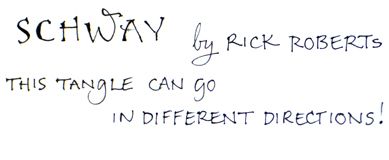 SCHWAY by RICK ROBERTS
THIS TANGLE CAN GO
IN DIFFERENT DIRECTIONS!